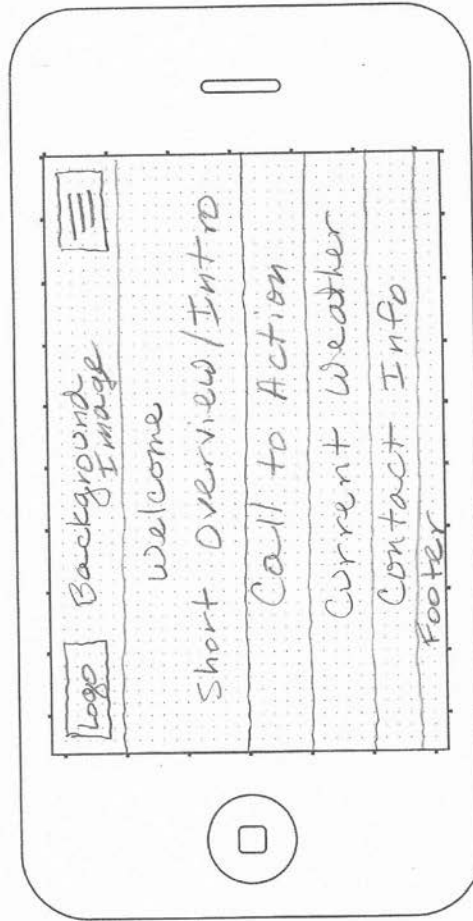 Logo
Background
Image
Welcome
Short Overview/Intro
Call to Action
Current Weather
Contact Info
Footer